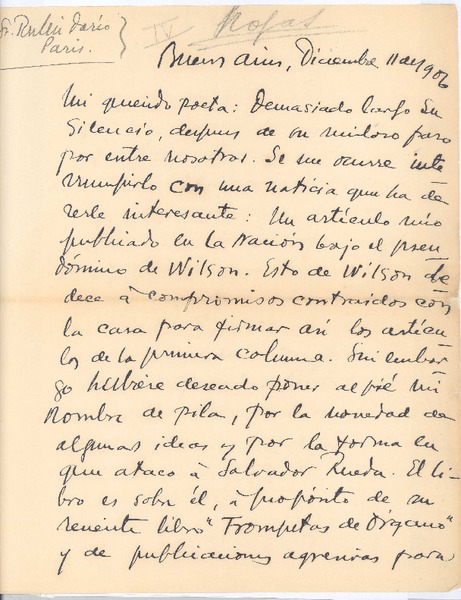 Sr. Rubén Darío
Paris.
IV
Rojas
Buenos Aires, Diciembre 11 de 1906
Mi querido poeta: Demasiado largo Su
Silencio, despues de su ruidoso paso
por entre nosotros. Se me ocurre inte
rrumpirlo con una noticia que ha de
serle interesante: Un artículo mío
publicado en La Nación bajo el pseu
dónimo de Wilson. Esto de Wilson obe
dece á compromisos contraidos con
la casa para firmar así los artícu
los de la primera columna. Sin embar
go hubiese deseado poner al pié mi
nombre de pila, por la novedad de
algunas ideas y por la forma en
que ataco á Salvador Rueda. El li-
bro es sobre él, á propósito de su
reciente libro "Trompetas de Órgano"
y de publicaciones agresivas para